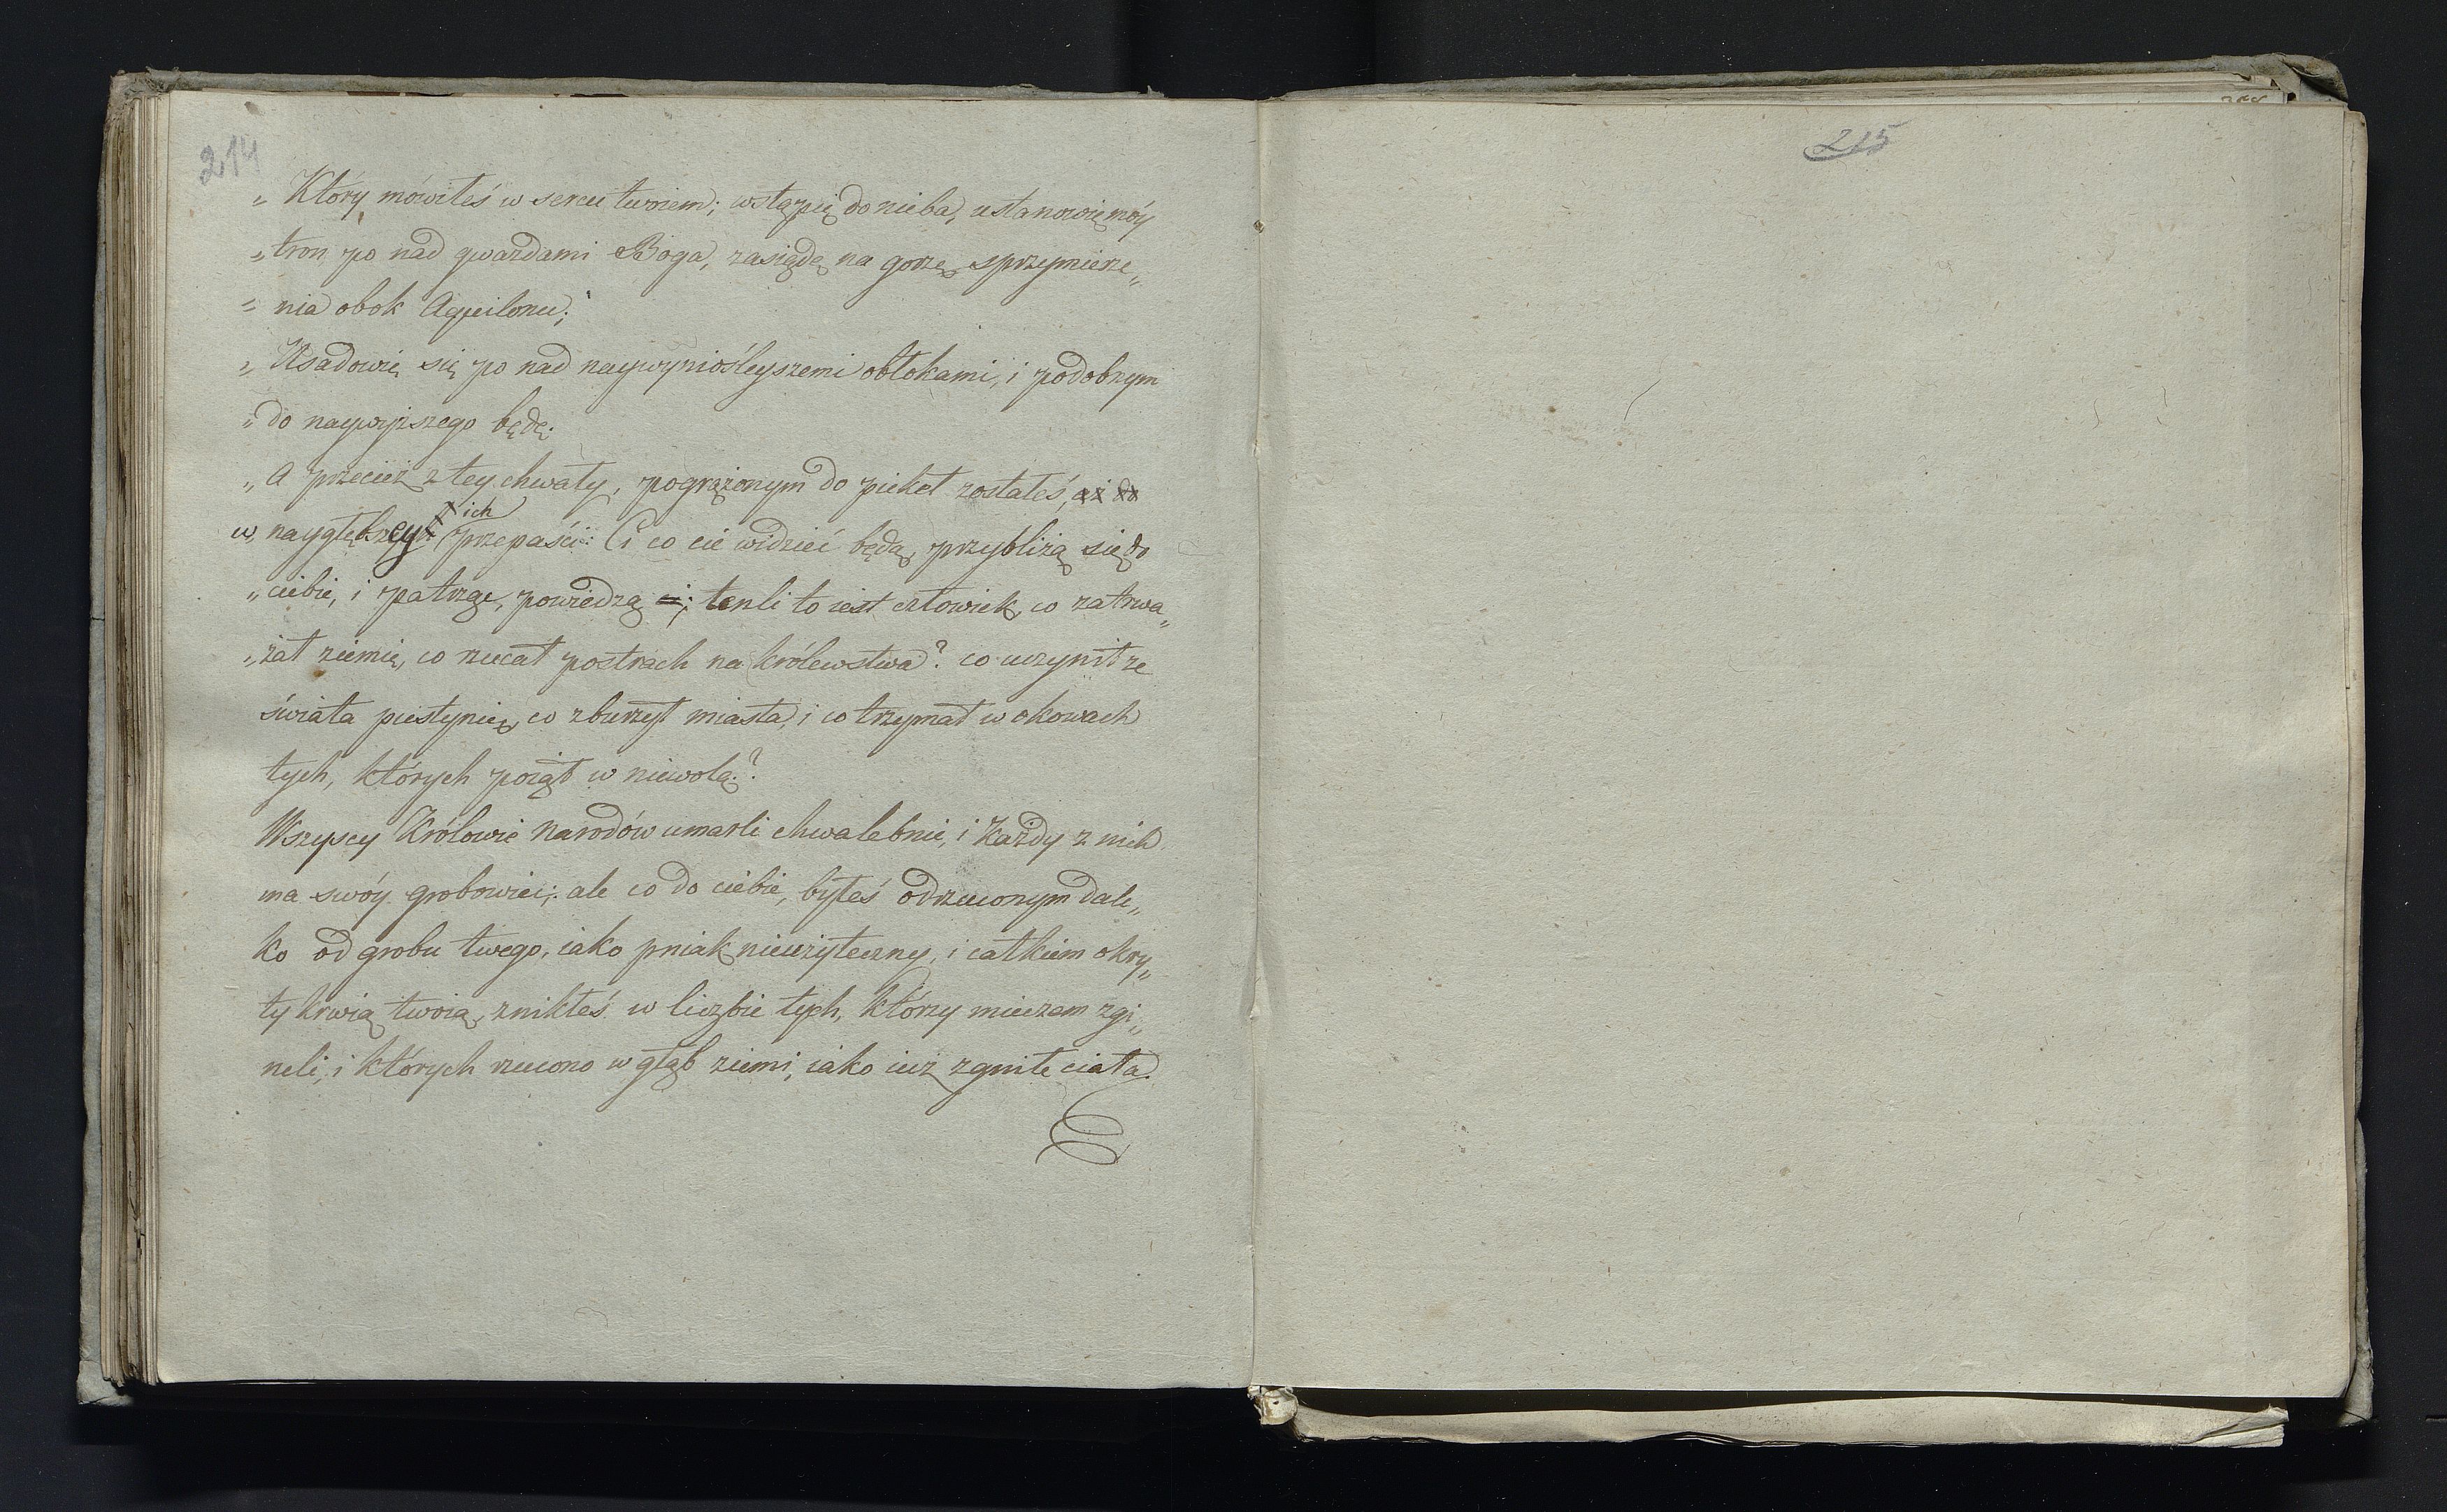 214
„ Który mówiłeś w sercu twoiem; wstąpię do nieba, ustanowię móy
„ tron po nad gwazdami Boga, zasiędę na gorze sprzymierze„
„ nia obok Aquilonu;
„ Usadowię się po nad naywyniośleyszemi obłokami, i podobnym
„ do naywyższego będę.
„ A przecież z tey chwały, pogrążonym do piekeł zostałeś, aż do
ich
w, naygłębszey przepaści: Ci co cie widzieć będą, przybliżą się do
„ ciebie, i patrząc, powiedzą ; tenli to iest człowiek, co zatrwa„
„ żał ziemię, co rzucał postrach na królewstwa? co uczynił ze
świata pustynię, co zburzył miasta, i co trzymał w okowach
tych, których poiął w niewolą?
Wszyscy Królowie narodów umarli chwalebnie, i każdy z nich
ma swóy grobowiec; ale co do ciebie, byłeś odrzuconym dale„
ko od grobu twego, iako pniak nieużyteczny, i całkiem okry„
ty krwią twoią, znikłeś w liczbie tych, którzy mieczem zgi„
neli, i których rzucono w głąb ziemi, iako iuż zgniłe ciała.
215